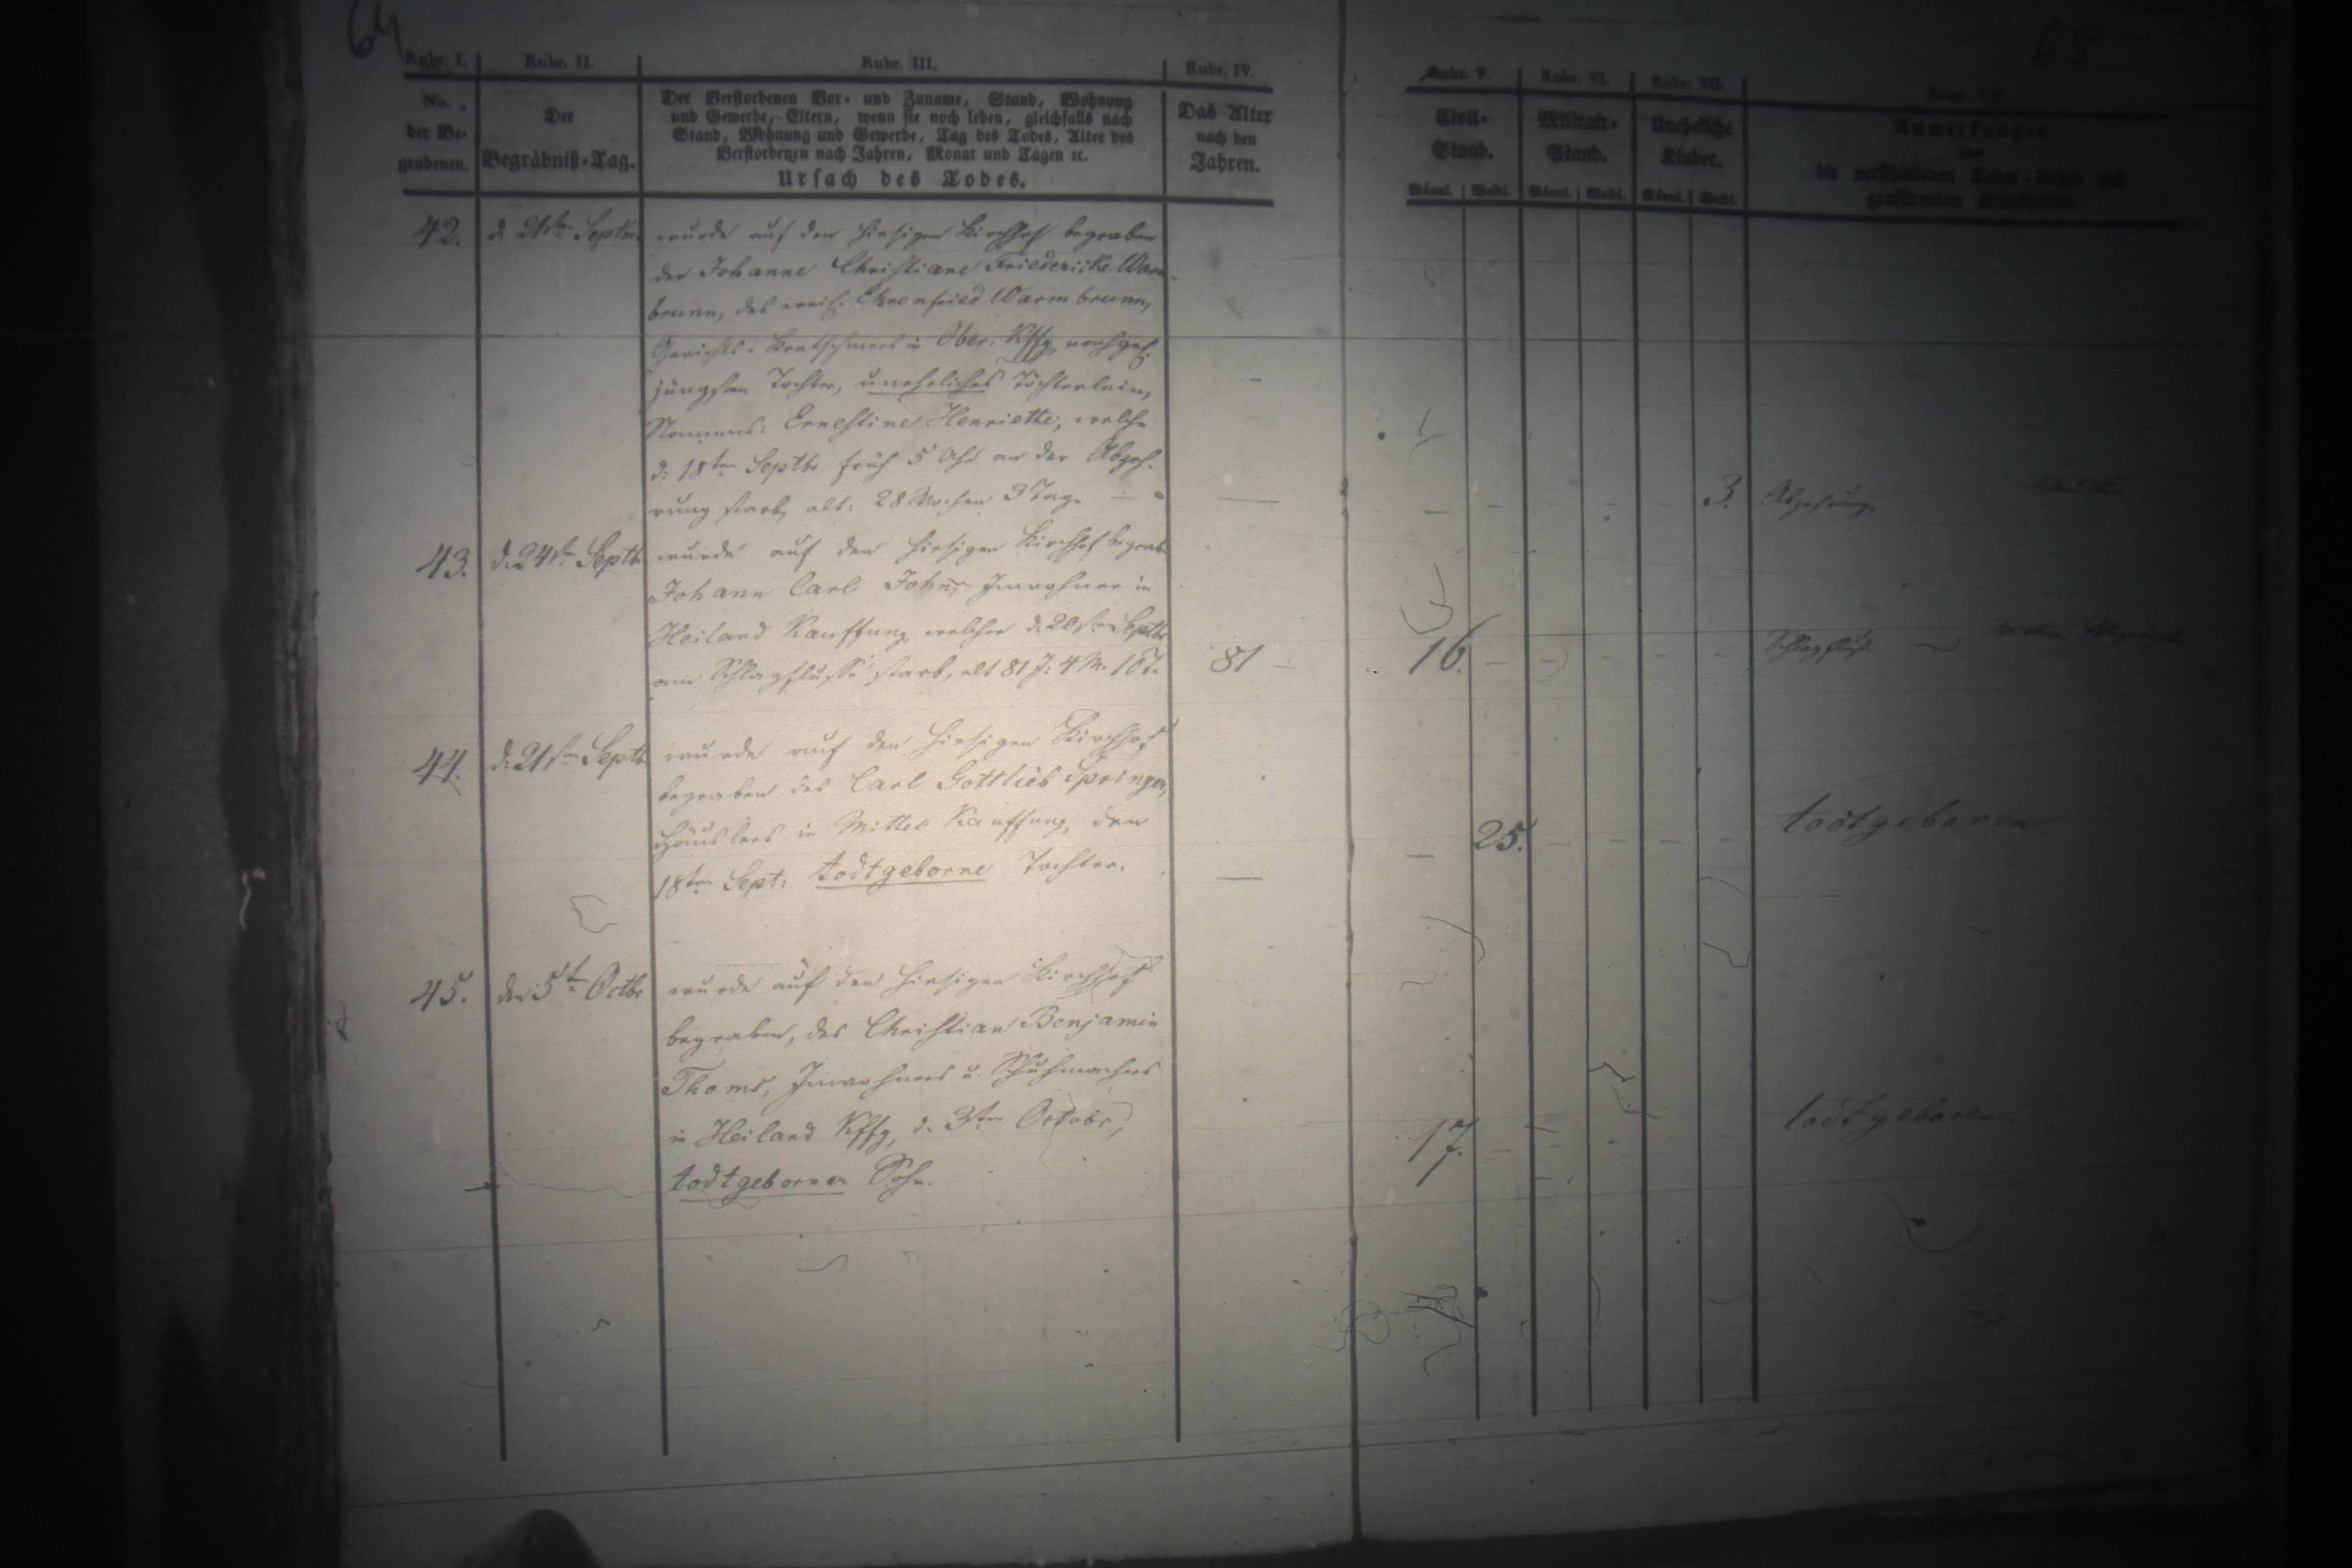 64
65
Rubr. I. Rubr. II. Rubr. III. Rubr. IV. Rubr. V. Rubr. VI. Rubr. VII. Rubr. VIII.
No. der Begrabenen.
Der Begräbniß-Tag.
Der Verstorbenen Vor- und Zuname, Stand, Wohnung
und Gewerbe, Eltern, wenn sie noch leben, gleichfalls nach
Stand, Wohnung und Gewerbe, Tag des Todes, Alter des
Verstorbenen nach Jahren, Monat und Tagen ꝛc.
Ursach des Todes.
Das Alter
nach den
Jahren.
Civil-
Stand.
Militair-
Stand.
Uneheliche
Kinder.
Männl. Weibl. Männl. Weibl. Männl. Weibl.
Anmerkungen
über
die verschiedenen Todes-Arten und
grassirenden Krankheiten.
42. d. 21ten Septbr. wurde auf den hiesigen Kirchhof begraben
der Johanne Christiane Friedericke Warm-
brunn, des weil. Ehrenfried Warmbrunn,
Gerichts-Kretschmers in Ober-Kffg, nachgel.
jüngsten Tochter, uneheliches Töchterlein,
Namens: Ernestine Henriette, welche
d: 18ten Septbr früh 5 Uhr an der Abzeh-
rung starb, alt: 28 Wochen 3 Tage — — 3. Abzehrung
43. d. 24ten Septbr wurde auf den hiesigen Kirchhof begrab.
Johann Carl John, Inwohner in
Heiland Kauffung, welcher d. 20sten Septbr
am Schlagflusse starb, alt 81 J: 4 M. 10 T. 81 — 16. Schlagfluß
44. d. 21ten Septbr wurde auf den hiesigen Kirchhof
begraben des Carl Gottlieb Springer,
Häuslers in Mittel Kauffung, den
18ten Sept: todtgeborne Tochter. — — 25. todtgeboren.
45. den 5ten Octbr wurde auf den hiesigen Kirchhof
begraben, des Christian Benjamin
Thoms, Inwohners u. Schuhmachers
in Heiland Kffg, d. 3ten Octobr, 17. todtgeboren.
todtgeborner Sohn.